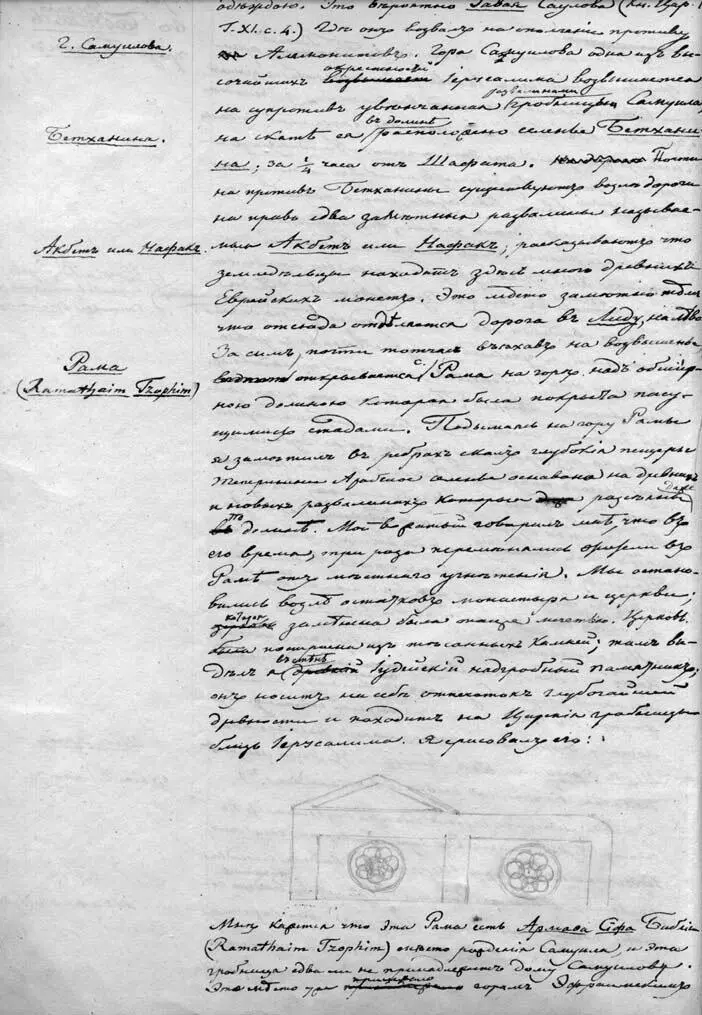 обѣждаю. Это вѣроятно Гавая Саулова (Кн. Цар. I
Г. XI. с. 4.) Гдѣ онъ воззвалъ на ополченіе противу
Г. Самуилова.
Аммонитовъ. Гора Самуилова одна изъ вы-
сочайшихъ окрестностей Іерусалима возвышается
на супротивъ увѣнчанная развалинами гробницы Самуила,
на скатѣ ея въ долинѣ расположено селенье Бетхани-
Бетханина.
на; за ¼ часа отъ Шафата. Почти
на противъ Бетханины существуютъ возлѣ дороги
на право едва замѣтныя развалины называе-
Акбетъ или Нафакъ.
мыя Акбетъ или Нафакъ; разсказываютъ что
земледѣльцы находятъ здѣсь много древнихъ
Еврейскихъ монетъ. Это мѣсто замѣтно тѣмъ
что отсюда отдѣляется дорога въ Лиду, на лѣво
За симъ, почти тотчасъ въѣхавъ на возвышенье,
Рама
(Ramathaim Tzophim)
открывается Рама на горѣ надъ обшир-
ною долиною которая была покрыта пасу-
щимися стадами. Подымаясь на гору Рамы
я замѣтилъ въ ребрахъ скалъ глубокія пещеры
Теперешнее Арабское селенье основано на древнихъ
и новыхъ развалинахъ которые разсѣяны даже
по долинѣ. Мой вожатый говорилъ мнѣ, что въ
его время, три раза перемѣнялись жители въ
Рамѣ отъ мѣстнаго угнѣтенія. Мы остано-
вились возлѣ остатковъ монастыря и церкви;
которая замѣнена была мечетью. Церковь
построена изъ тесанныхъ камней; тамъ ви-
дѣлъ я въ стѣнѣ Іудейскій надгробный памятникъ;
онъ носитъ на себѣ отпечатокъ глубочайшей
древности и походитъ на Царскія гробницы
близь Іерусалима. Я срисовалъ его:
Мнѣ кажется что эта Рама есть Армаѳа Сифа Библіи
(Ramathaim Tzophim) мѣсто рожденія Самуила, и эта
гробница едва ли не принадлежитъ дому Самуилову.
Это мѣсто горамъ Эфраимскимъ